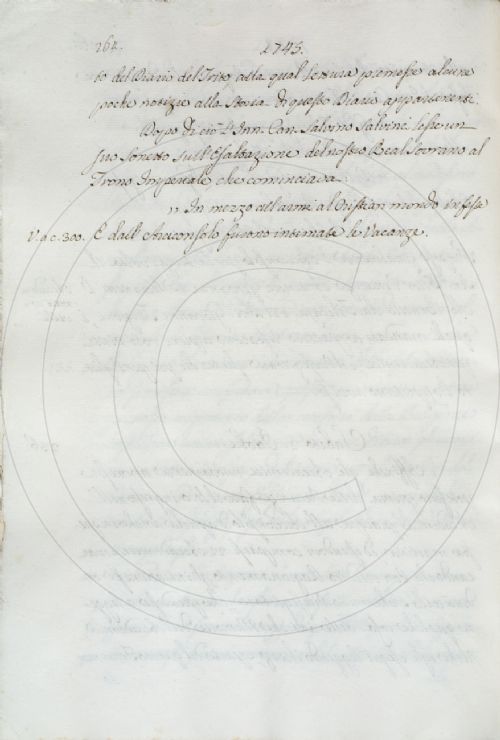 264.
1745.
to del Diario del Trito alla qual lettura premesse alcune
poche notizie alla Storia di questo Diario appartenenti.
Dopo di ciò l'Inn. Can. Salvino Salvini lesse un
suo Sonetto sull'Esaltazione del nostro Real Sovrano al
Trono Imperiale che cominciava.
,, In mezzo all'armi al Cristian mondo infeste
V. a c. 300. E dall'Arciconsolo furono intimate le Vacanze.